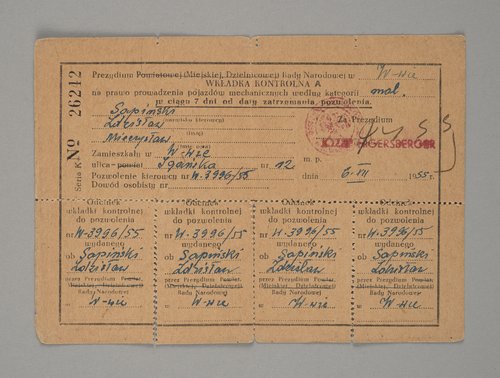 Seria K No 26212
Prezydium Powiatowej (Miejskiej, Dzielnicowej) Rady Narodowej w W-wie
WKŁADKA KONTROLNA A
na prawo prowadzenia pojazdów mechanicznych według kategorii mot.
w ciągu 7 dni od daty zatrzymania pozwolenia.
Sapiński
Za Prezydium
Zdzisław
(nazwisko kierowcy)
(imię)
Mieczysław
JÓZEF
Zamieszkały w W-wie
ulica-powiat nr 12
m. p.
Pozwolenie kierowcy nr W-3996/55
dnia 6-III 1955 r.
Dowód osobisty nr
Odcinek Odcinek Odcinek Odcinek
wkładki kontrolnej wkładki kontrolnej wkładki kontrolnej wkładki kontrolnej
do pozwolenia do pozwolenia do pozwolenia do pozwolenia
nr W-3996/55 nr W-3996/55 nr W-3996/55 nr W-3996/55
wydanego wydanego wydanego wydanego
ob Sapiński ob Sapiński ob Sapiński ob Sapiński
Zdzisław Zdzisław Zdzisław Zdzisław
przez Prezydium Powiat. przez Prezydium Powiat. przez Prezydium Powiat. przez Prezydium Powiat.
(Miejskiej, Dzielnicowej) (Miejskiej, Dzielnicowej) (Miejskiej, Dzielnicowej) (Miejskiej, Dzielnicowej)
Rady Narodowej Rady Narodowej Rady Narodowej Rady Narodowej
w W-wie w W-wie w W-wie w W-wie